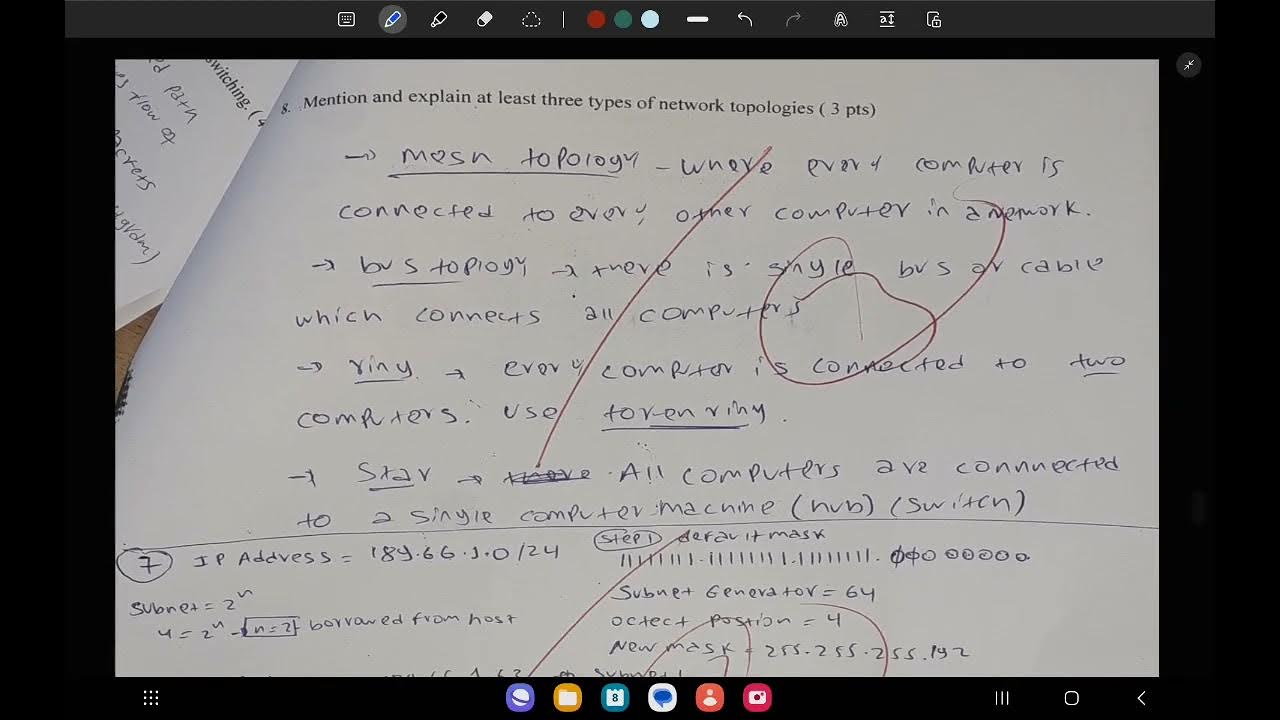 switching. (
8. Mention and explain at least three types of network topologies ( 3 pts)
→ mesh topology - where every computer is
connected to every other computer in a nework.
→ bus toplogy → there is single bus or cable
which connects all computers
→ ring → every computer is connected to two
computers. use token ring.
→ Star → All computers are connnected
to a single computer machine (hub) (switch)
7 IP Address = 189.66.1.0/24
Step 1 default mask
11111111.11111111.11111111.00000000
Subnet = 2^n
4 = 2^n → n=2 borrowed from host
Subnet Generator = 64
octect postion = 4
New mask = 255.255.255.192
subnet 1